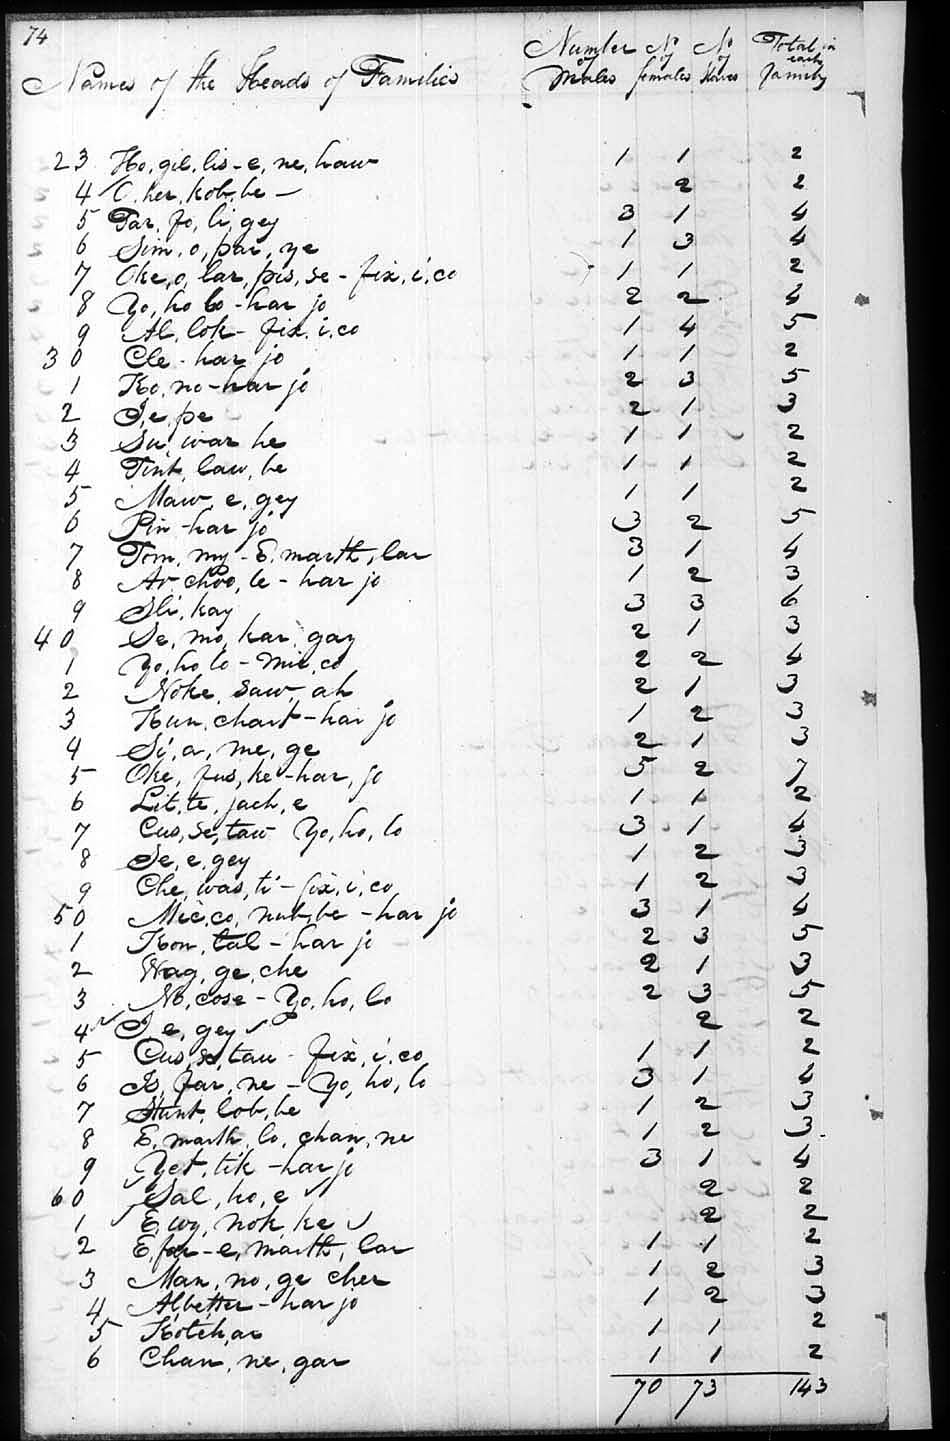 74
Names of the Heads of Families Number of Males No of females No of Slaves Total in each family
23 Ho, gil, lis - e, ne, haw 1 1 2
4 O, her, kob, be - 2 2
5 Par, fo, li, gey 3 1 4
6 Sim, o, par, ye 1 3 4
7 Oke, o, lar, pis, se - fix, i, co 1 1 2
8 Yo, ho lo - har jo 2 2 4
9 Al, lok - fix, i, co 1 4 5
30 Cle - har jo 1 1 2
1 Ko, no - har jo 2 3 5
2 Se, pe 2 1 3
3 Su, war he 1 1 2
4 Tint, law, be 1 1 2
5 Maw, e, gey 1 1 2
6 Pin - har jo 3 2 5
7 Tom, my - E, marth, lar 3 1 4
8 Ar, choo, le - har jo 1 2 3
9 Sli, kay 3 3 6
40 Se, mo, kar, gay 2 1 3
1 Yo, ho, lo - mic, co 2 2 4
2 Noke, saw, ah 2 1 3
3 Kun, chart - har jo 1 2 3
4 Si, a, me, ge 2 1 3
5 Oke, fus, ke - har, jo 5 2 7
6 Lit, te, jach, e 1 1 2
7 Cus, se, taw Yo, ho, lo 3 1 4
8 Se, e, gey 1 2 3
9 Che, was, ti - fix, i, co 1 2 3
50 Mic, co, nub, be - har jo 3 1 4
1 Kon, tal - har jo 2 3 5
2 Wag, ge, che 2 1 3
3 No, cose - Yo, ho, lo 2 3 5
4 I e, gey 2 2
5 Cus, se, tau - fix, i, co 1 1 2
6 Is, far, ne - Yo, ho, lo 3 1 4
7 Hunt, lob, be 1 2 3
8 E, marth, lo, chan, ne 1 2 3
9 Yet, tik - har jo 3 1 4
60 Sal, ho, e 2 2
1 E, wy, nok, ke 2 2
2 E, far - e, marth, lar 1 1 2
3 Man, no, ge cher 1 2 3
4 Albetter - har jo 1 2 3
5 Kotch, ar 1 1 2
6 Chan, ne, gar 1 1 2
70 73 143